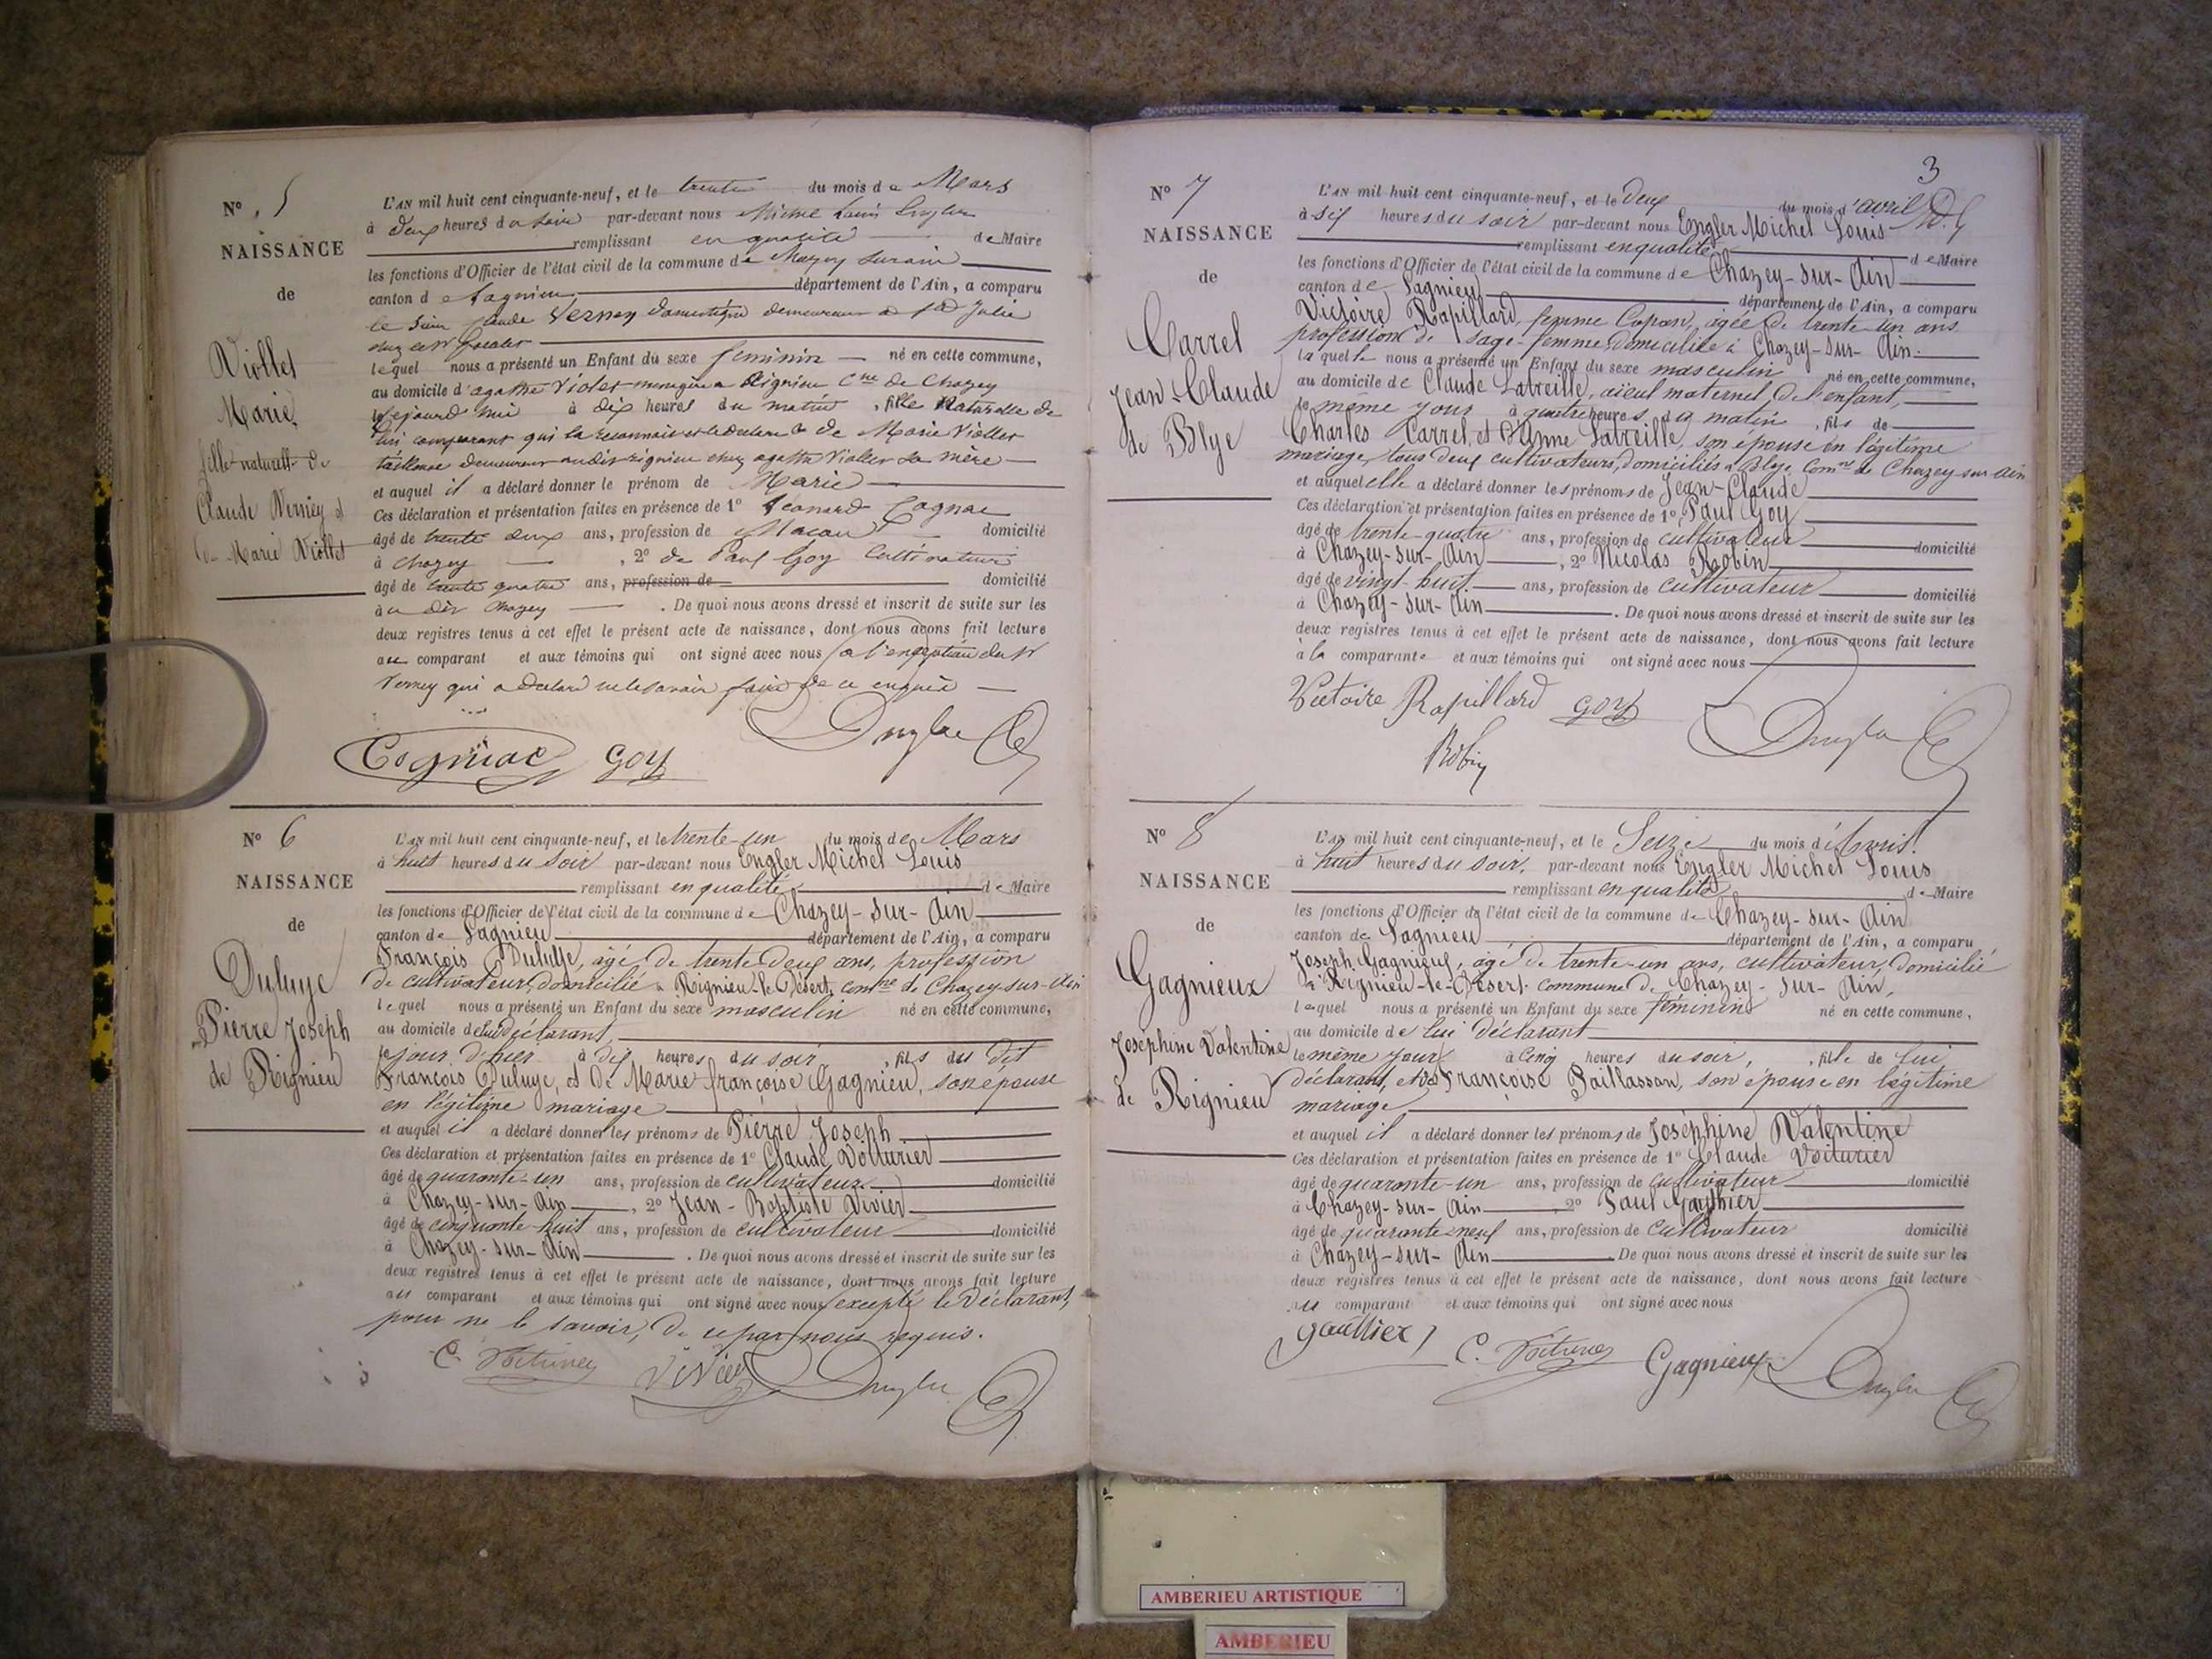 N° 5
NAISSANCE
de
Viollet
Marie
fille naturelle de
Claude Verney et
de Marie Viollet
L'AN mil huit cent cinquante-neuf, et le trente du mois de Mars
à deux heures du soir par-devant nous Michel Louis Engler
remplissant en qualité de Maire
les fonctions d'Officier de l'état civil de la commune de Chazey sur ain
canton de Lagnieu département de l'Ain, a comparu
le Sieur Claude Verney domestique demeurant à Ste Julie
chez
lequel nous a présenté un Enfant du sexe feminin né en cette commune,
au domicile d'agathe Violet menagère a Rignieu Cne de Chazey
cejourd'hui à dix heures du matin, fille Naturelle de
lui comparant qui la reconnait et le declare & de Marie Viollet
tailleuse demeurant audit rignieu chez agathe Viollet sa mère
et auquel il a déclaré donner le prénom de Marie
Ces déclaration et présentation faites en présence de 1° Léonard Cognac
âgé de trente deux ans, profession de Macon domicilié
à Chazey, 2° de Paul Goy Cultivateur
âgé de trente quatre ans, profession de domicilié
au dit Chazey. De quoi nous avons dressé et inscrit de suite sur les
deux registres tenus à cet effet le présent acte de naissance, dont nous avons fait lecture
au comparant et aux témoins qui ont signé avec nous à l'exception du Sr
Verney qui a declaré ne le savoir faire de ce enquis
Cogniac Goy Engler
N° 6
NAISSANCE
de
Duluye
Pierre Joseph
de Rignieu
L'AN mil huit cent cinquante-neuf, et le trente-un du mois de Mars
à huit heures du soir par-devant nous Engler Michel Louis
remplissant en qualité de Maire
les fonctions d'Officier de l'état civil de la commune de Chazey-sur-Ain
canton de Lagnieu département de l'Ain, a comparu
François Duluye, âgé de trente deux ans, profession
de cultivateur, domicilié à Rignieu-le-Désert, comne de Chazey-sur-Ain
lequel nous a présenté un Enfant du sexe masculin né en cette commune,
au domicile de lui déclarant,
le jour d'hier à dix heures du soir, fils du dit
François Duluye, et de Marie françoise Gagnieu, son épouse
en légitime mariage
et auquel il a déclaré donner les prénoms de Pierre Joseph
Ces déclaration et présentation faites en présence de 1° Claude Voiturier
âgé de quarante-un ans, profession de cultivateur domicilié
à Chazey-sur-Ain, 2° Jean-Baptiste Vivier
âgé de cinquante-huit ans, profession de cultivateur domicilié
à Chazey-sur-Ain. De quoi nous avons dressé et inscrit de suite sur les
deux registres tenus à cet effet le présent acte de naissance, dont nous avons fait lecture
au comparant et aux témoins qui ont signé avec nous excepté le Déclarant,
pour ne le savoir, de ce par nous requis.
C. Voiturier Vivier Engler
3
N° 7
NAISSANCE
de
Carrel
Jean-Claude
de Blye
L'AN mil huit cent cinquante-neuf, et le deux du mois d'avril
à six heures du soir par-devant nous Engler Michel Louis
remplissant en qualité de Maire
les fonctions d'Officier de l'état civil de la commune de Chazey-sur-Ain
canton de Lagnieu département de l'Ain, a comparu
Victoire Rapillard, femme Capan, âgée de trente-un ans
profession de sage-femme domiciliée à Chazey-sur-Ain.
laquelle nous a présenté un Enfant du sexe masculin né en cette commune,
au domicile de Claude Latreille, aïeul maternel de l'enfant,
le même jour à quatre heures du matin, fils de
Charles Carrel, et d'Anne Latreille, son épouse en légitime
mariage, tous deux cultivateurs, domiciliés à Blye, Comne de Chazey-sur-Ain
et auquel elle a déclaré donner les prénoms de Jean-Claude
Ces déclaration et présentation faites en présence de 1° Paul Goy
âgé de trente-quatre ans, profession de cultivateur domicilié
à Chazey-sur-Ain, 2° Nicolas Robin
âgé de vingt-huit ans, profession de cultivateur domicilié
à Chazey-sur-Ain. De quoi nous avons dressé et inscrit de suite sur les
deux registres tenus à cet effet le présent acte de naissance, dont nous avons fait lecture
à la comparante et aux témoins qui ont signé avec nous
Victoire Rapillard Goy Engler
Robin
N° 8
NAISSANCE
de
Gagnieux
Joséphine Valentine
de Rignieu
L'AN mil huit cent cinquante-neuf, et le Seize du mois d'Avril
à huit heures du soir, par-devant nous Engler Michel Louis
remplissant en qualité de Maire
les fonctions d'Officier de l'état civil de la commune de Chazey-sur-Ain
canton de Lagnieu département de l'Ain, a comparu
Joseph Gagnieux, âgé de trente-un ans, cultivateur, domicilié
à Rignieu-le-Désert, commune de Chazey-sur-Ain,
lequel nous a présenté un Enfant du sexe féminin né en cette commune,
au domicile de lui déclarant
le même jour à cinq heures du soir, fille de lui
déclarant, et de Françoise Paillasson, son épouse en légitime
mariage
et auquel il a déclaré donner les prénoms de Joséphine Valentine
Ces déclaration et présentation faites en présence de 1° Claude Voiturier
âgé de quarante-un ans, profession de Cultivateur domicilié
à Chazey-sur-Ain, 2° Paul Gauthier
âgé de quarante-neuf ans, profession de Cultivateur domicilié
à Chazey-sur-Ain. De quoi nous avons dressé et inscrit de suite sur les
deux registres tenus à cet effet le présent acte de naissance, dont nous avons fait lecture
au comparant et aux témoins qui ont signé avec nous
gauthier C. Voiturier Gagnieux Engler
AMBERIEU ARTISTIQUE
AMBERIEU